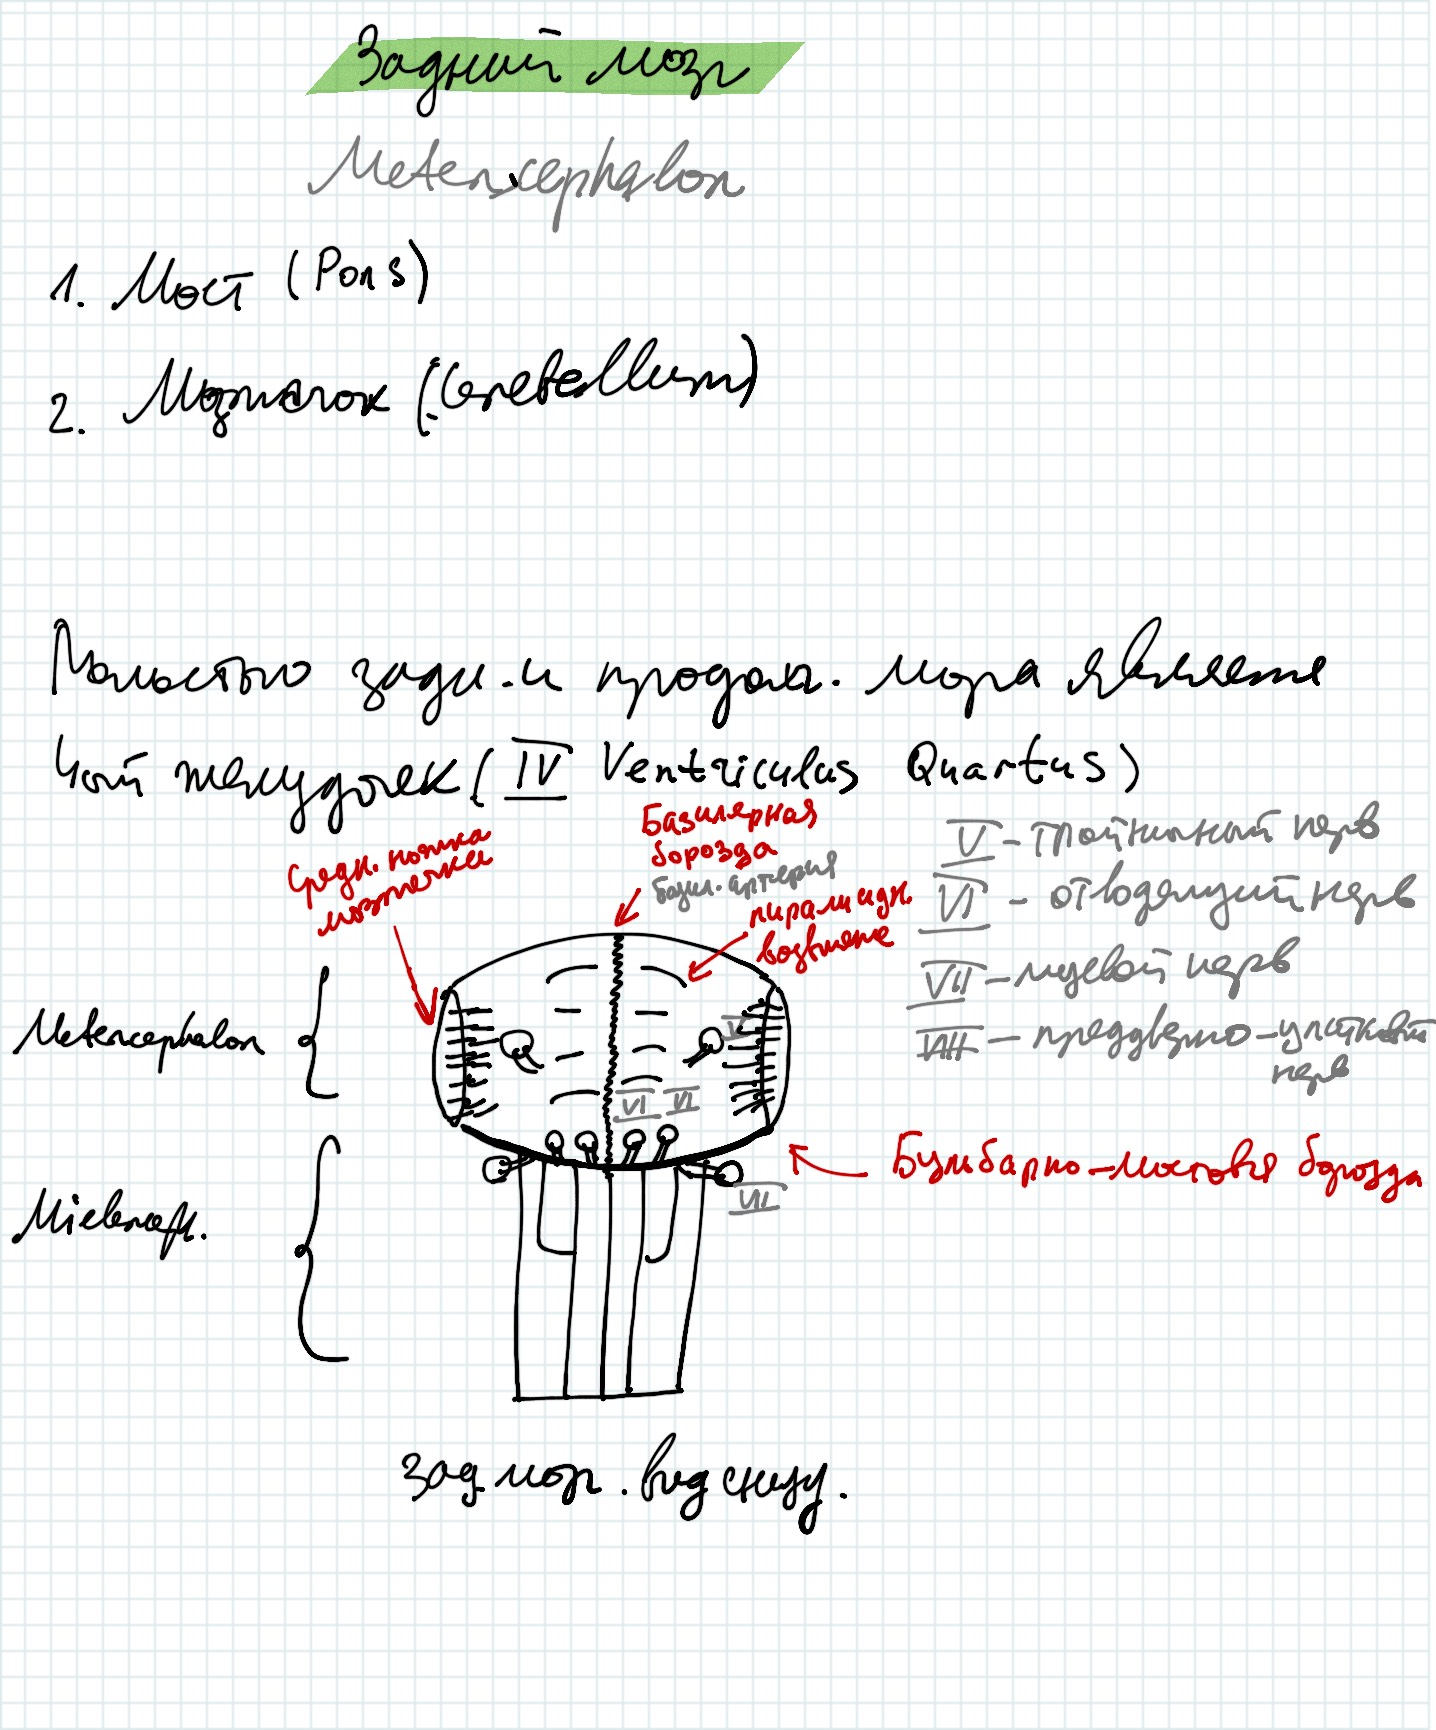 Задний мозг
Metencephalon
1. Мост (Pons)
2. Мозжечок (Cerebellum)
Полостью задн. и продол. мозга является
4ый желудочек (IV Ventriculus Quartus)
Средн. ножка
мозжечка
Базилярная
борозда
базил. артерия
пирамидн.
возвышение
V - тройничный нерв
VI - отводящий нерв
VII - лицевой нерв
VIII - преддверно-улитковый
нерв
Metencephalon
V
VI VI
VII
Бульбарно-мостовая борозда
зад мозг. вид снизу.